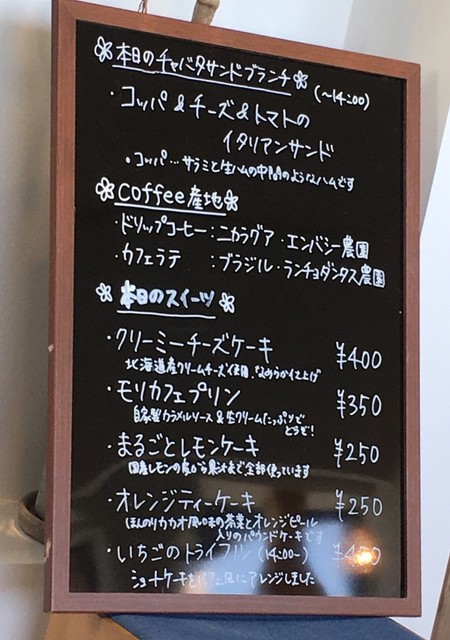 本日のチャバタサンドブランチ
(〜14:00)
・コッパ&チーズ&トマトの
イタリアンサンド
・コッパ…サラミと生ハムの中間のようなハムです
Coffee産地
・ドリップコーヒー:ニカラグア・エンバシー農園
・カフェラテ :ブラジル・ランチョダンタス農園
本日のスイーツ
・クリーミーチーズケーキ ¥400
北海道産クリームチーズ使用、なめらか仕上げ
・モリカフェプリン ¥350
自家製カラメルソース&生クリームたっぷりで
どうぞ!
・まるごとレモンケーキ ¥250
国産レモンの皮から果汁まで全部使っています
・オレンジティーケーキ ¥250
ほんのりカカオ風味の茶葉とオレンジピール
入りのパウンドケーキです
・いちごのトライフル(14:00〜) ¥450
ショートケーキをパフェ風にアレンジしました